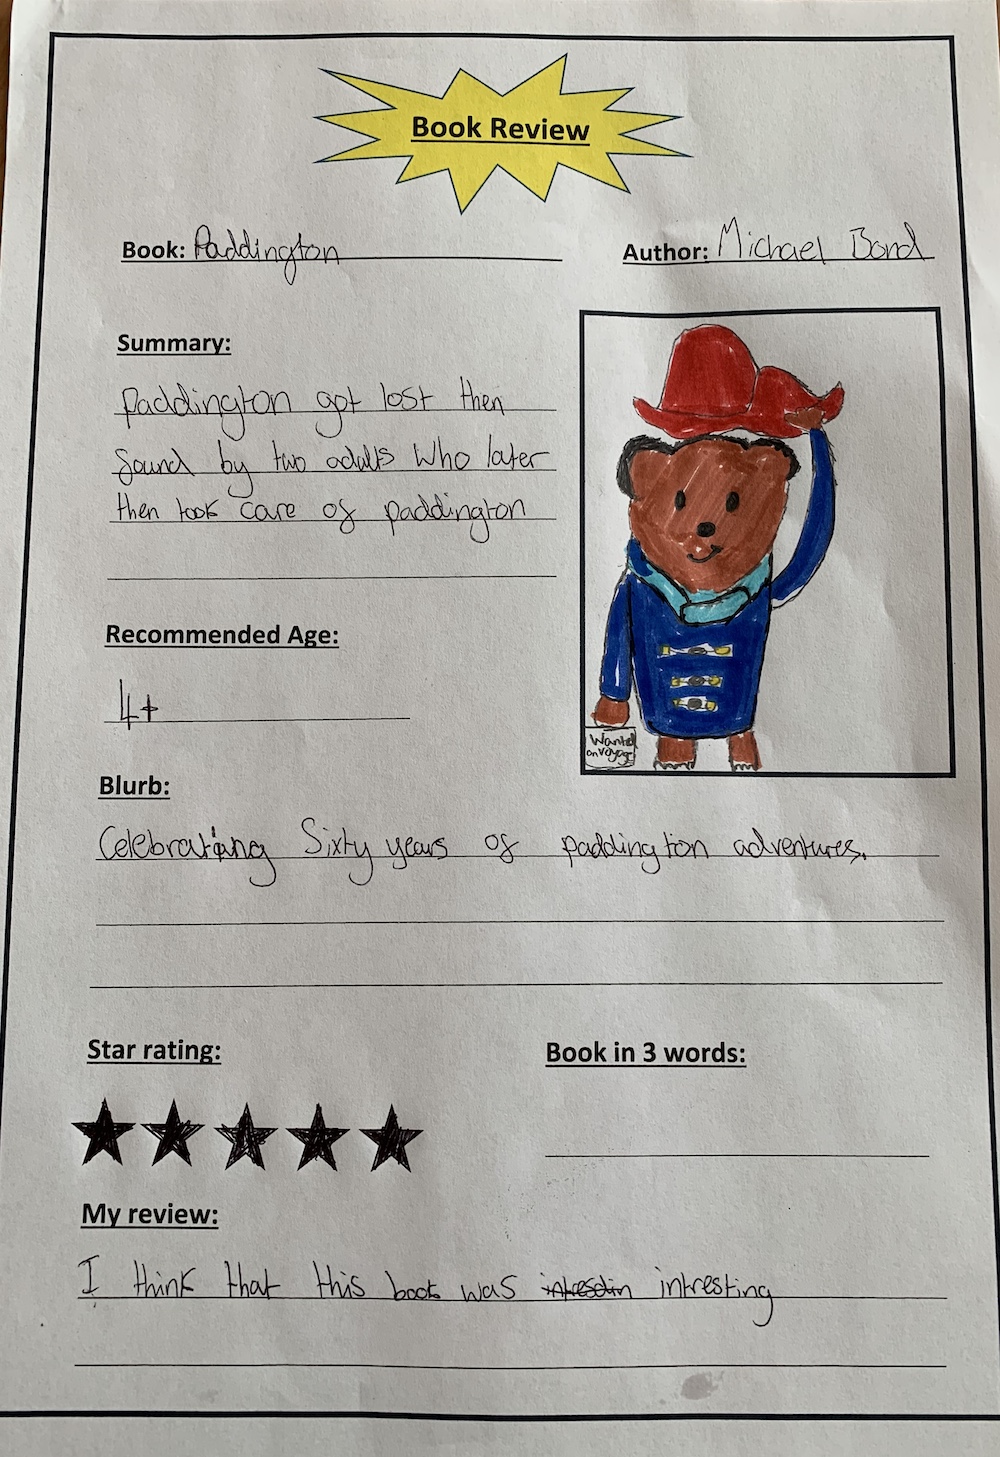 Book Review
Book: Paddington
Author: Michael Bond
Summary:
paddington got lost then
found by two adults who later
then took care of paddington
Wanted
on voyage
Recommended Age:
4+
Blurb:
Celebrating Sixty years of paddington adventures.
Star rating:
Book in 3 words:
My review:
I think that this book was intresdin intresting